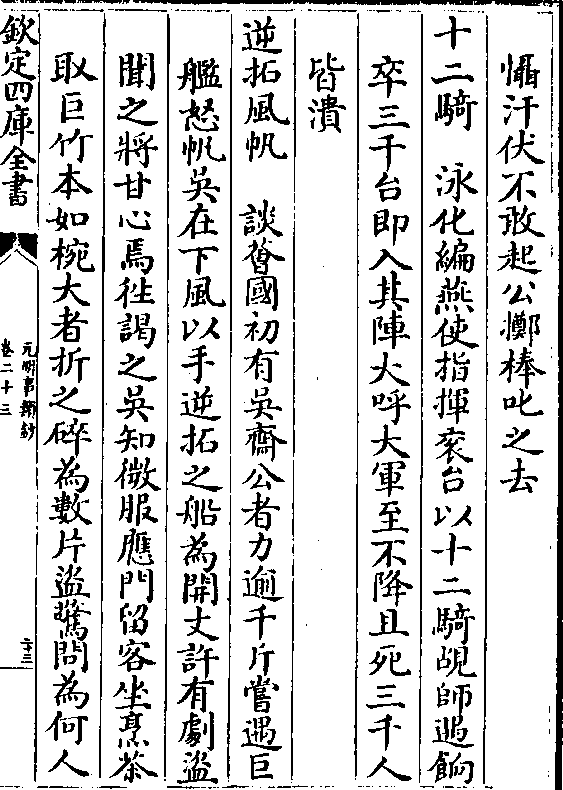 懾汗伏不敢起公擲棒叱之去
十二騎　泳化編燕使指揮衮台以十二騎覘師遇餉
卒三千台即入其陣大呼大軍至不降且死三千人
皆潰
逆拓風帆　談薈國初有吳齋公者力逾千斤嘗遇巨
艦怒帆吳在下風以手逆拓之船為開丈許有劇盜
聞之將甘心焉徃謁之吳知微服應門留客坐烹茶
取巨竹本如椀大者折之碎為數片盜驚問為何人
欽定四庫全書
元明事類鈔
卷二十三
二十三